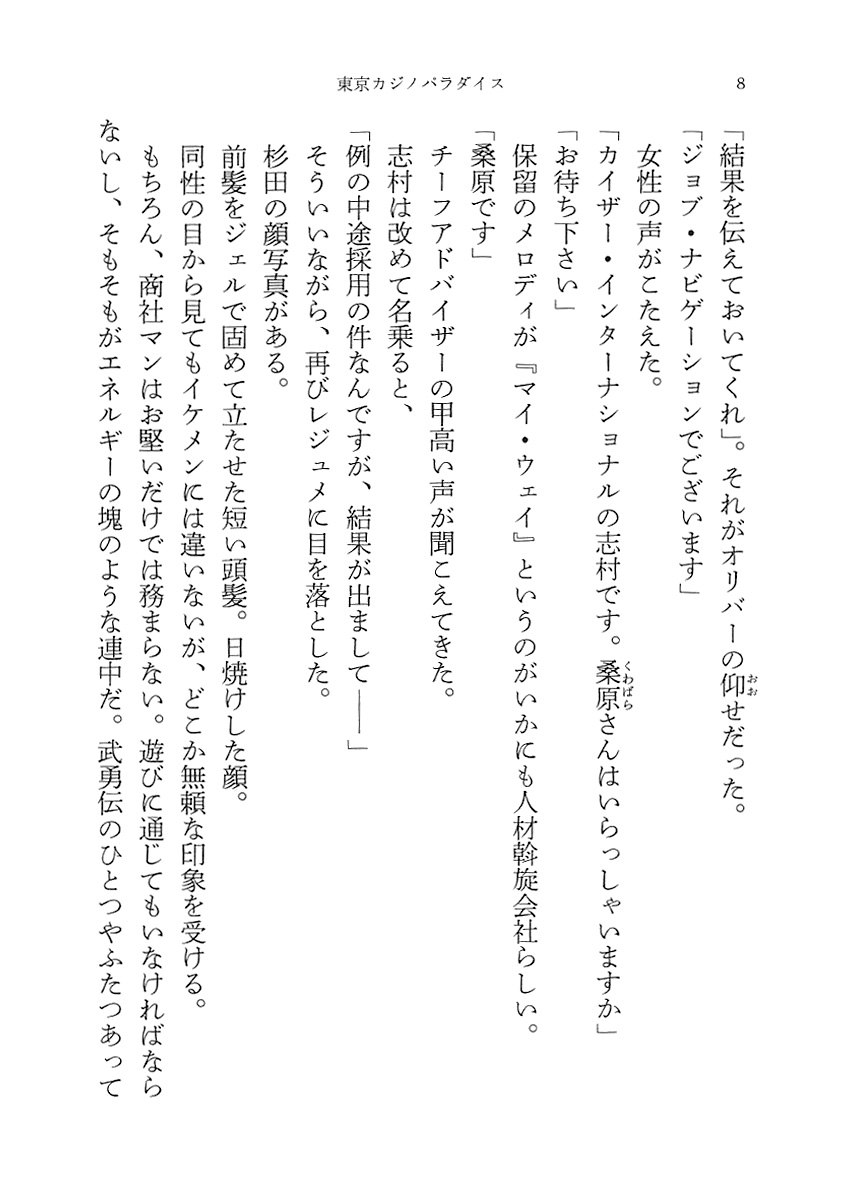 東京カジノパラダイス
8
「結果を伝えておいてくれ」。それがオリバーの仰せだった。
「ジョブ・ナビゲーションでございます」
女性の声がこたえた。
「カイザー・インターナショナルの志村です。桑原さんはいらっしゃいますか」
「お待ち下さい」
保留のメロディが『マイ・ウェイ』というのがいかにも人材斡旋会社らしい。
「桑原です」
チーフアドバイザーの甲高い声が聞こえてきた。
志村は改めて名乗ると、
「例の中途採用の件なんですが、結果が出まして――」
そういいながら、再びレジュメに目を落とした。
杉田の顔写真がある。
前髪をジェルで固めて立たせた短い頭髪。日焼けした顔。
同性の目から見てもイケメンには違いないが、どこか無頼な印象を受ける。
もちろん、商社マンはお堅いだけでは務まらない。遊びに通じてもいなければなら
ないし、そもそもがエネルギーの塊のような連中だ。武勇伝のひとつやふたつあって
おお
くわばら